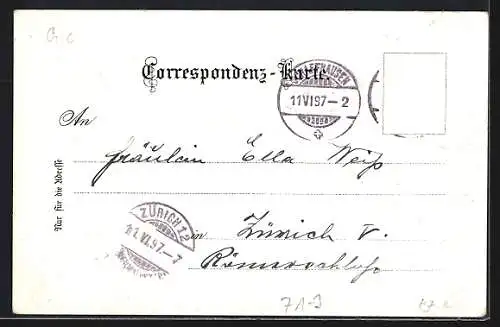 G c
Correspondenz-Karte.
SCHAFFHAUSEN
11 VI 97–2
An
Fräulein Ella Weiß
Nur für die Adresse
ZÜRICH 12
11.VI.97.–7
in Zürich V.
Römerschloß
71-9